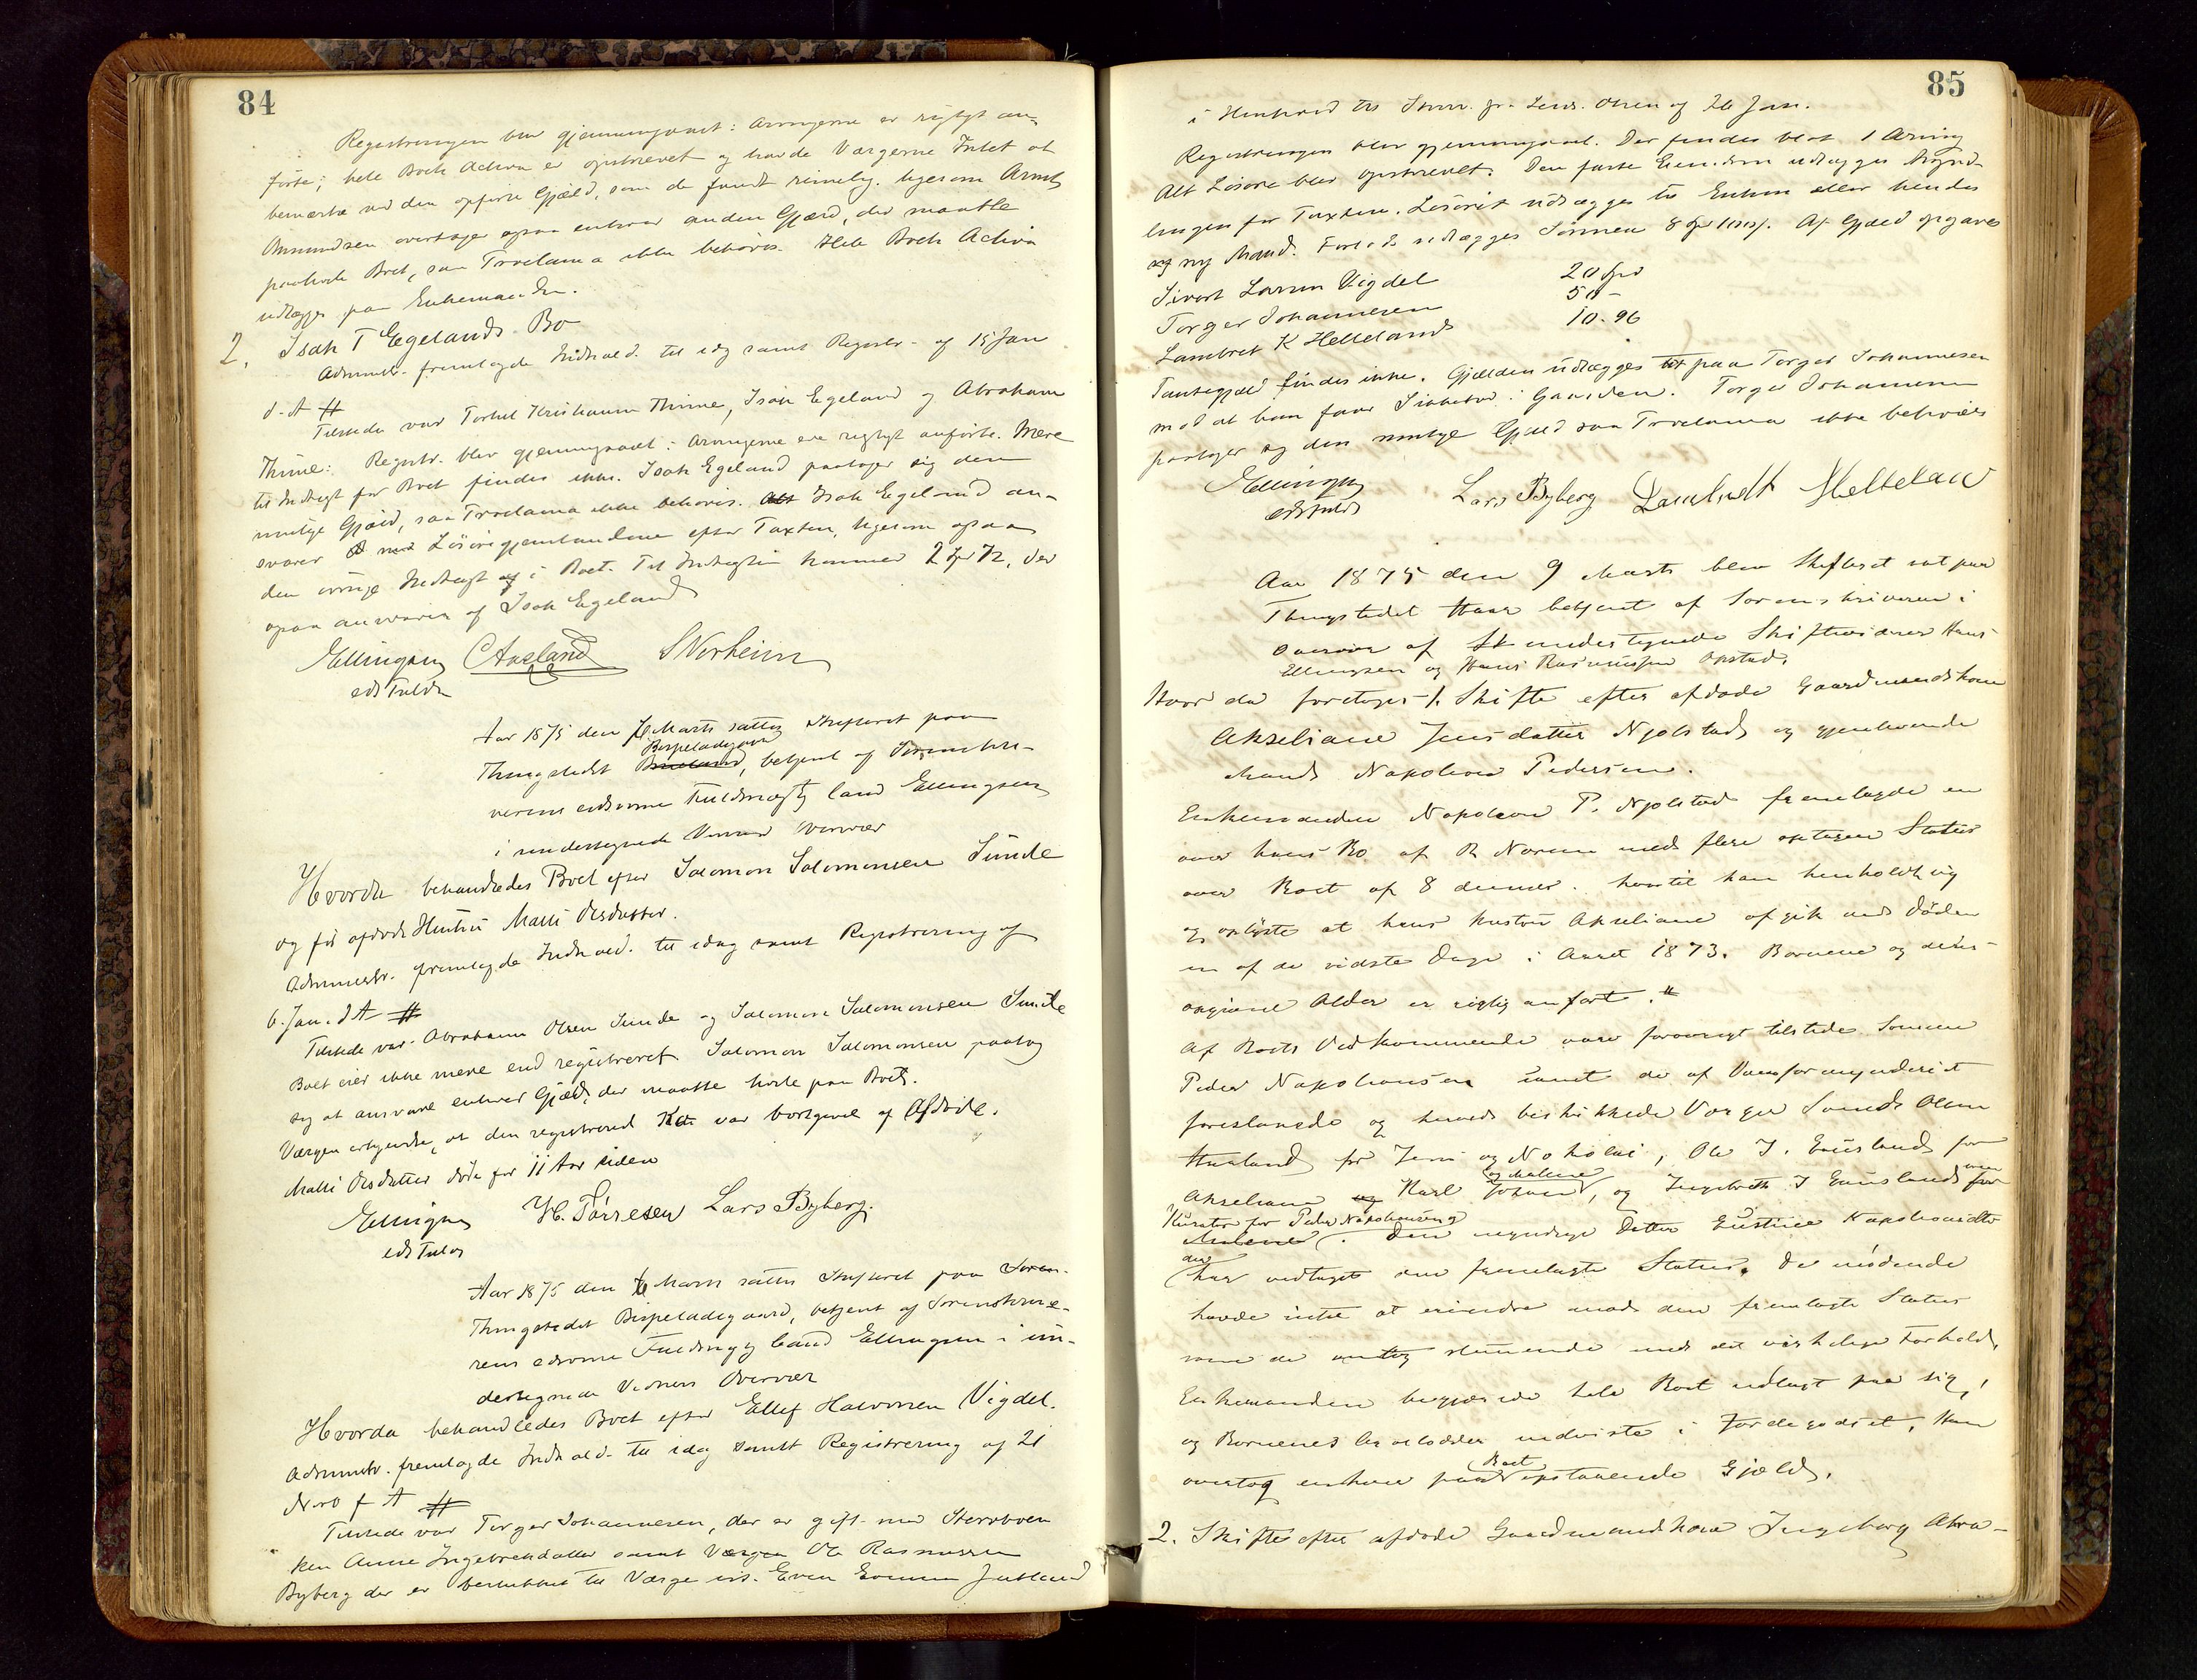 84
Registreringen blev gjennemgaaet: Arvingerne er rigtigt an-
førte; hele Boets Activa er opskrevet og havde Værgerne Intet at
bemærke ved den opførte Gjæld, som de fandt rimelig. ligesom Arnt
Amundsen overtager ogsaa enhver anden Gjæld, der maatte
paahvile Boet, saa Proclama ikke behøves. Hele Boets Activa
udlægges paa Enkemanden.
2. Isak T Egelands Bo
Administr. fremlagde Indkald. til idag samt Registr. af 15 Jan
d. A #
Tilstede var Torkel Kristiansen Thime, Isak Egeland og Abraham
Thime: Registr. blev gjennemgaaet: Arvingerne ere rigtigt anførte. Mere
til Indtægt for Boet findes ikke. Isak Egeland paatager sig den
mulige Gjæld, saa Proclama ikke behøves. Isak Egeland an-
svarer Løsøregjenstandene efter Taxten, ligesom ogsaa
den øvrige Indtægt i Boet. Til Indtægten kommer 2 Spd 72, der
ogsaa ansvares af Isak Egeland
Ellingsen CAaeland S Norheim
eds Fuldm
Aar 1875 den 6 Marts sattes Skifteret paa
Thingstedet Bispeladegaard, betjent af Sorenskri-
verens edsvorne Fuldmægtig Cand Ellingsen
i undertegnede Vidners Overvær
Hvorda behandledes Boet efter Salomon Salomonsen Sunde
og før afdøde Hustru Malli Olsdatter.
Administr. fremlagde Indkald. til idag samt Registrering af
6. Jan. d A #
Tilstede var Abraham Olsen Sunde og Salomon Salomonsen Sunde
Boet eier ikke mere end registreret. Salomon Salomonsen paatog
sig at ansvare enhver Gjæld, der maatte hvile paa Boet.
Værgen erkjendte, at den registrered var bortgivet af Afdøde.
Malli Olsdatter døde for 11 Aar siden
Ellingsen H. Tørresen Lars Byberg.
eds Fuldm
Aar 1875 den 6 Marts sattes Skifteret paa
Thingstedet Bispeladegaard, betjent af Sorenskrive-
rens edsvorne Fuldmægtig Cand Ellingsen i un-
dertegnede Vidners Overvær
Hvorda behandledes Boet efter Ellef Halvorsen Vigdel.
Administr. fremlagde Indkald. til idag samt Registrering af 21
Novb f A #
Tilstede var Torger Johannesen, der er gift med Stervboen-
ken Anne Ingebretsdatter samt Værgen Ole Rasmussen
Byberg der er beskikket til Værge
85
i Henhold til Skriv. fra Lensm. Olsen af 26 Jan.
Registreringen blev gjennemgaaet. Der findes blot 1 Arving
Alt Løsøre blev opskrevet. Den faste Eiendom udlægges Mynd-
lingen for Taxten. Løsøret udlægges til Enken eller hendes
ny Mand. Forlods udlægges Sønnen 8 Spd. Af Gjæld opgaves
Sivert Larsen Vigdel 20 Spd
Torger Johannesen 50 -
Lambret K Helleland 10. 96
Pantegjæld findes ikke. Gjælden udlægges paa Torger Johannesen
mod at han faar Sikkerhed i Gaarden. Torger Johannesen
paatager sig den mulige Gjæld saa Proclama ikke behøves
Ellingsen Lars Byberg Lambreth Helleland
eds Fuldm
Aar 1875 den 9 Marts blev Skifteret sat paa
Thingstedet Haar betjent af Sorenskriveren i
Overvær af undertegnede Skiftevidner Hans
Ellingsen og Hans Rasmussen Opstad.
Hvor da foretoges 1. Skifte efter afdøde Gaardmandskone
Akseliane Jensdatter Njolstad og gjenlevende
Mand Napoleon Pedersen.
Enkemanden Napoleon P. Njolstad fremlagde en
over hans Bo af R Norem med flere optagen Status
over Boet af 8 dennes. hvortil han henholdt sig
og oplyste at hans Hustru Akseliane afgik ved Døden
en af de sidste Dage i Aaret 1873. Børnene og deres
opgivne Alder er rigtig anført. #
Af Boets Vedkommende vare forøvrigt tilstede Sønnen
Peder Napoleonsen samt de af Overformynderiet
foreslaaede og herved beskikkede Værger Svend Olsen
Haaland for Jens og Nokolai, Ole J. for
Akseliane Karl Johan og Malene, og Ingebreth J
Kurator for Peder Napoleonsen. Den myndige Datter Napoleonsdtr
har vedtaget den fremlagte Status. De mødende
havde intet at erindre mod den fremlagte Status
som de antog stemmende med det virkelige Forhold.
Enkemanden begjærede hele Boet udlagt paa sig,
og Børnenes Arvelodder indviste i Jordegodset. Han
overtog enhver paa Boet opstaaende Gjæld.
2. Skifte efter afdøde Gaardmandskone Ingeborg Abra-